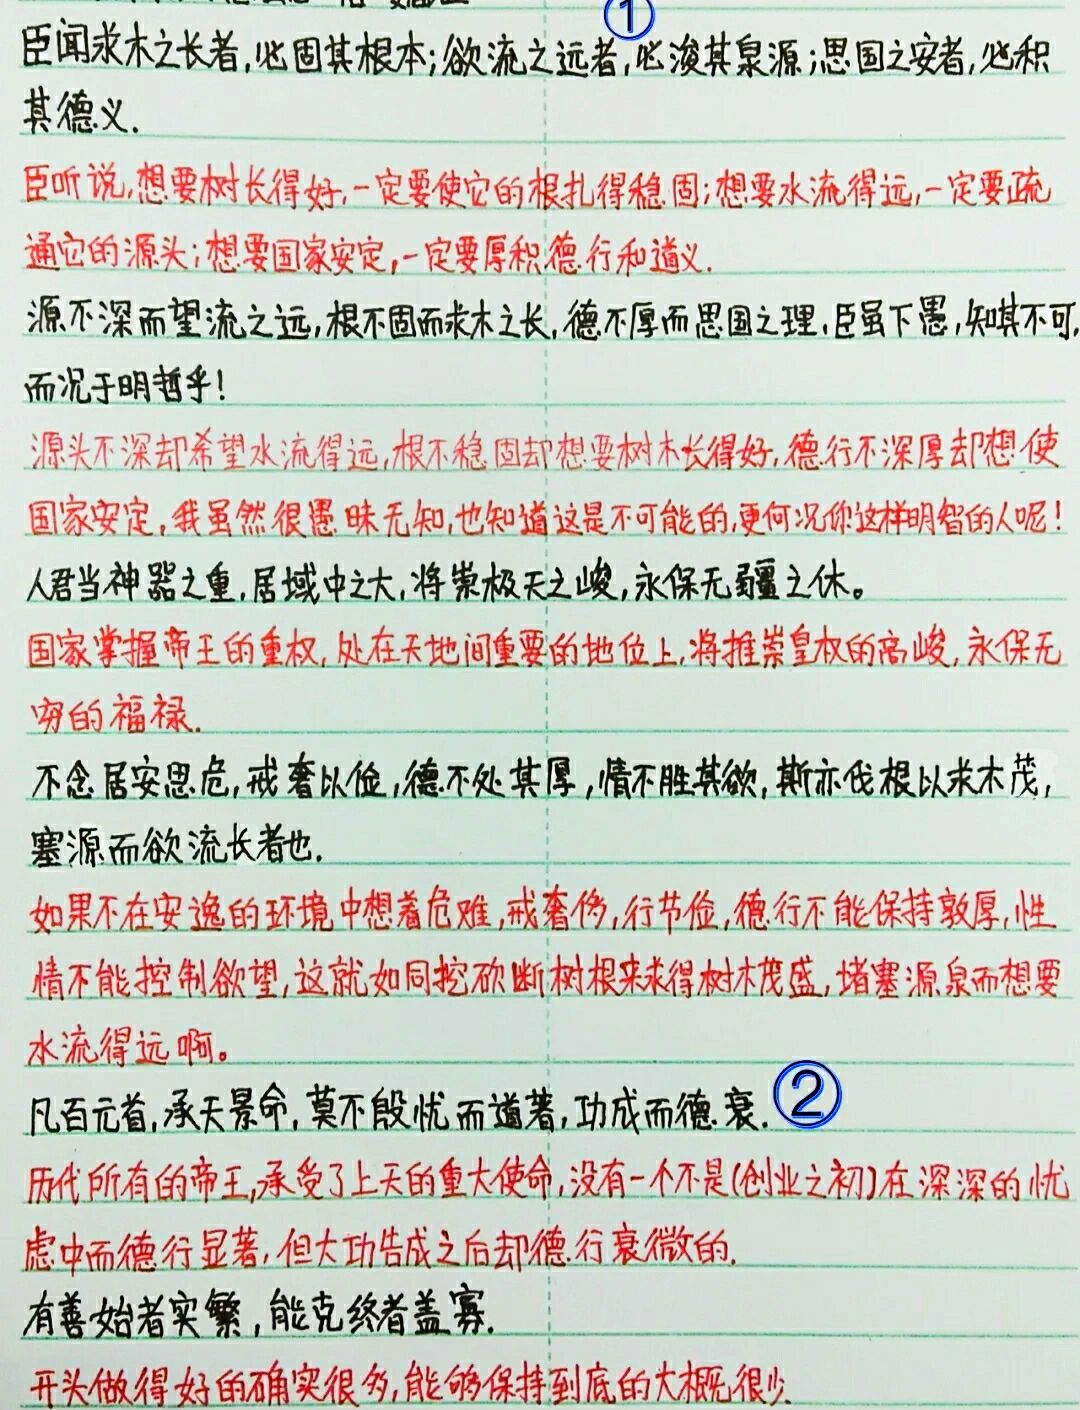 ①
臣闻求木之长者,必固其根本;欲流之远者,必浚其泉源;思国之安者,必积
其德义.
臣听说,想要树长得好,一定要使它的根扎得稳固;想要水流得远,一定要疏
通它的源头;想要国家安定,一定要厚积德行和道义.
源不深而望流之远,根不固而求木之长,德不厚而思国之理,臣虽下愚,知其不可,
而况于明哲乎!
源头不深却希望水流得远,根不稳固却想要树木长得好,德行不深厚却想使
国家安定,我虽然很愚昧无知,也知道这是不可能的,更何况你这样明智的人呢!
人君当神器之重,居域中之大,将崇极天之峻,永保无疆之休。
国家掌握帝王的重权,处在天地间重要的地位上,将推崇皇权的高峻,永保无
穷的福禄.
不念居安思危,戒奢以俭,德不处其厚,情不胜其欲,斯亦伐根以求木茂,
塞源而欲流长者也.
如果不在安逸的环境中想着危难,戒奢侈,行节俭,德行不能保持敦厚,性
情不能控制欲望,这就如同挖砍断树根来求得树木茂盛,堵塞源泉而想要
水流得远啊。
凡百元首,承天景命,莫不殷忧而道著,功成而德衰. ②
历代所有的帝王,承受了上天的重大使命,没有一个不是(创业之初)在深深的忧
虑中而德行显著,但大功告成之后却德行衰微的.
有善始者实繁,能克终者盖寡.
开头做得好的确实很多,能够保持到底的大概很少.